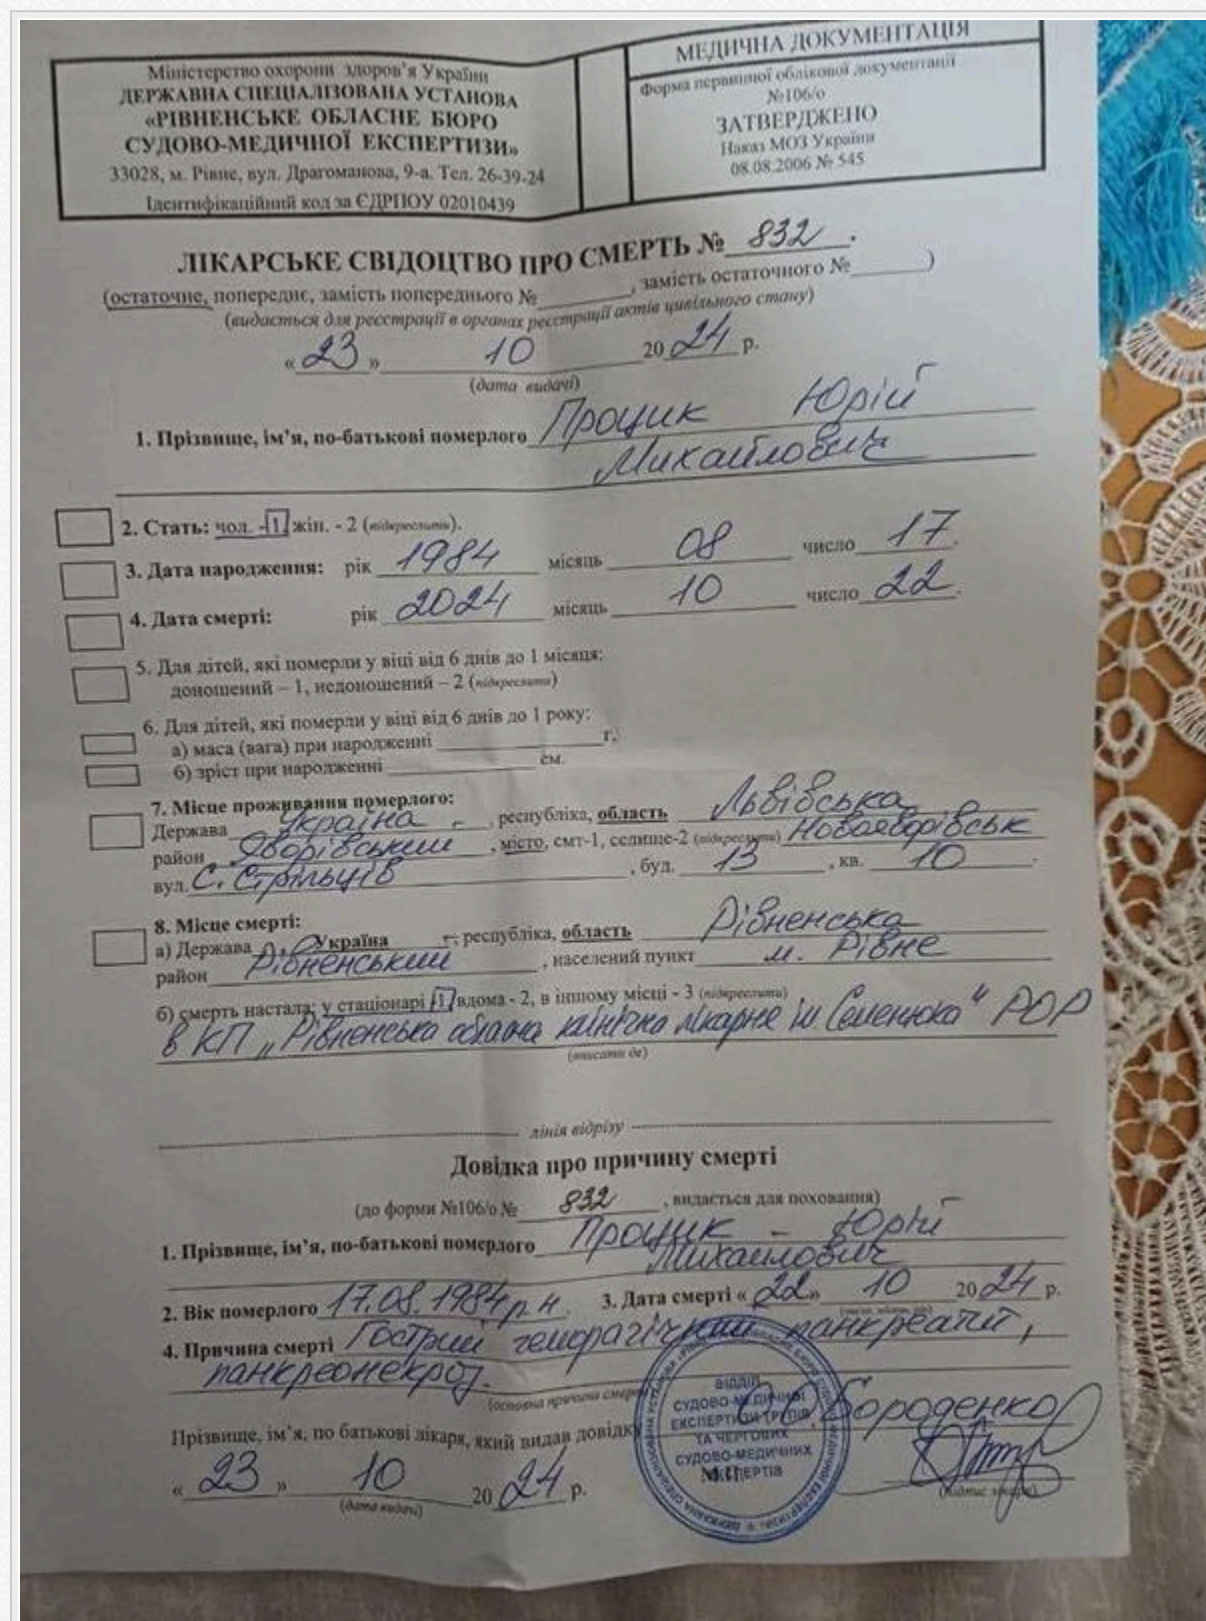 Міністерство охорони здоров'я України
ДЕРЖАВНА СПЕЦІАЛІЗОВАНА УСТАНОВА
«РІВНЕНСЬКЕ ОБЛАСНЕ БЮРО
СУДОВО-МЕДИЧНОЇ ЕКСПЕРТИЗИ»
33028, м. Рівне, вул. Драгоманова, 9-а. Тел. 26-39-24
Ідентифікаційний код за ЄДРПОУ 02010439
МЕДИЧНА ДОКУМЕНТАЦІЯ
Форма первинної облікової документації
№106/о
ЗАТВЕРДЖЕНО
Наказ МОЗ України
08.08.2006 № 545
ЛІКАРСЬКЕ СВІДОЦТВО ПРО СМЕРТЬ № 832.
(остаточне, попереднє, замість попереднього № , замість остаточного № )
(видається для реєстрації в органах реєстрації актів цивільного стану)
«23» 10 2024 р.
(дата видачі)
1. Прізвище, ім'я, по-батькові померлого Процик Юрій
Михайлович
2. Стать: чол. -1, жін. - 2 (підкреслити).
3. Дата народження: рік 1984 місяць 08 число 17.
4. Дата смерті: рік 2024 місяць 10 число 22.
5. Для дітей, які померли у віці від 6 днів до 1 місяця:
доношений – 1, недоношений – 2 (підкреслити)
6. Для дітей, які померли у віці від 6 днів до 1 року:
а) маса (вага) при народженні г.
б) зріст при народженні см.
7. Місце проживання померлого:
Держава Україна , республіка, область Львівська
район Яворівський , місто, смт-1, селище-2 (підкреслити) Новояворівськ
вул. С. Стрільців , буд. 13 , кв. 10 .
8. Місце смерті:
а) Держава Україна , республіка, область Рівненська
район Рівненський , населений пункт м. Рівне
б) смерть настала: у стаціонарі 1, вдома - 2, в іншому місці - 3 (підкреслити)
в КП „Рівненська обласна клінічна лікарня ім Семенюка" РОР
(вписати де)
лінія відрізу
Довідка про причину смерті
(до форми №106/о № 832 , видається для поховання)
1. Прізвище, ім'я, по-батькові померлого Процик - Юрій
Михайлович
2. Вік померлого 17.08.1984 р.н. 3. Дата смерті «22» 10 2024 р.
4. Причина смерті Гострий геморагічний панкреатит,
панкреонекроз.
(основна причина смерті
Прізвище, ім'я, по батькові лікаря, який видав довідку Бороденко
«23» 10 2024 р.
(дата видачі)
(підпис лікаря)
ВІДДІЛ
СУДОВО-МЕДИЧНОЇ
ЕКСПЕРТИЗИ ТРУПІВ
ТА ЧЕРГОВИХ
СУДОВО-МЕДИЧНИХ
ЕКСПЕРТІВ